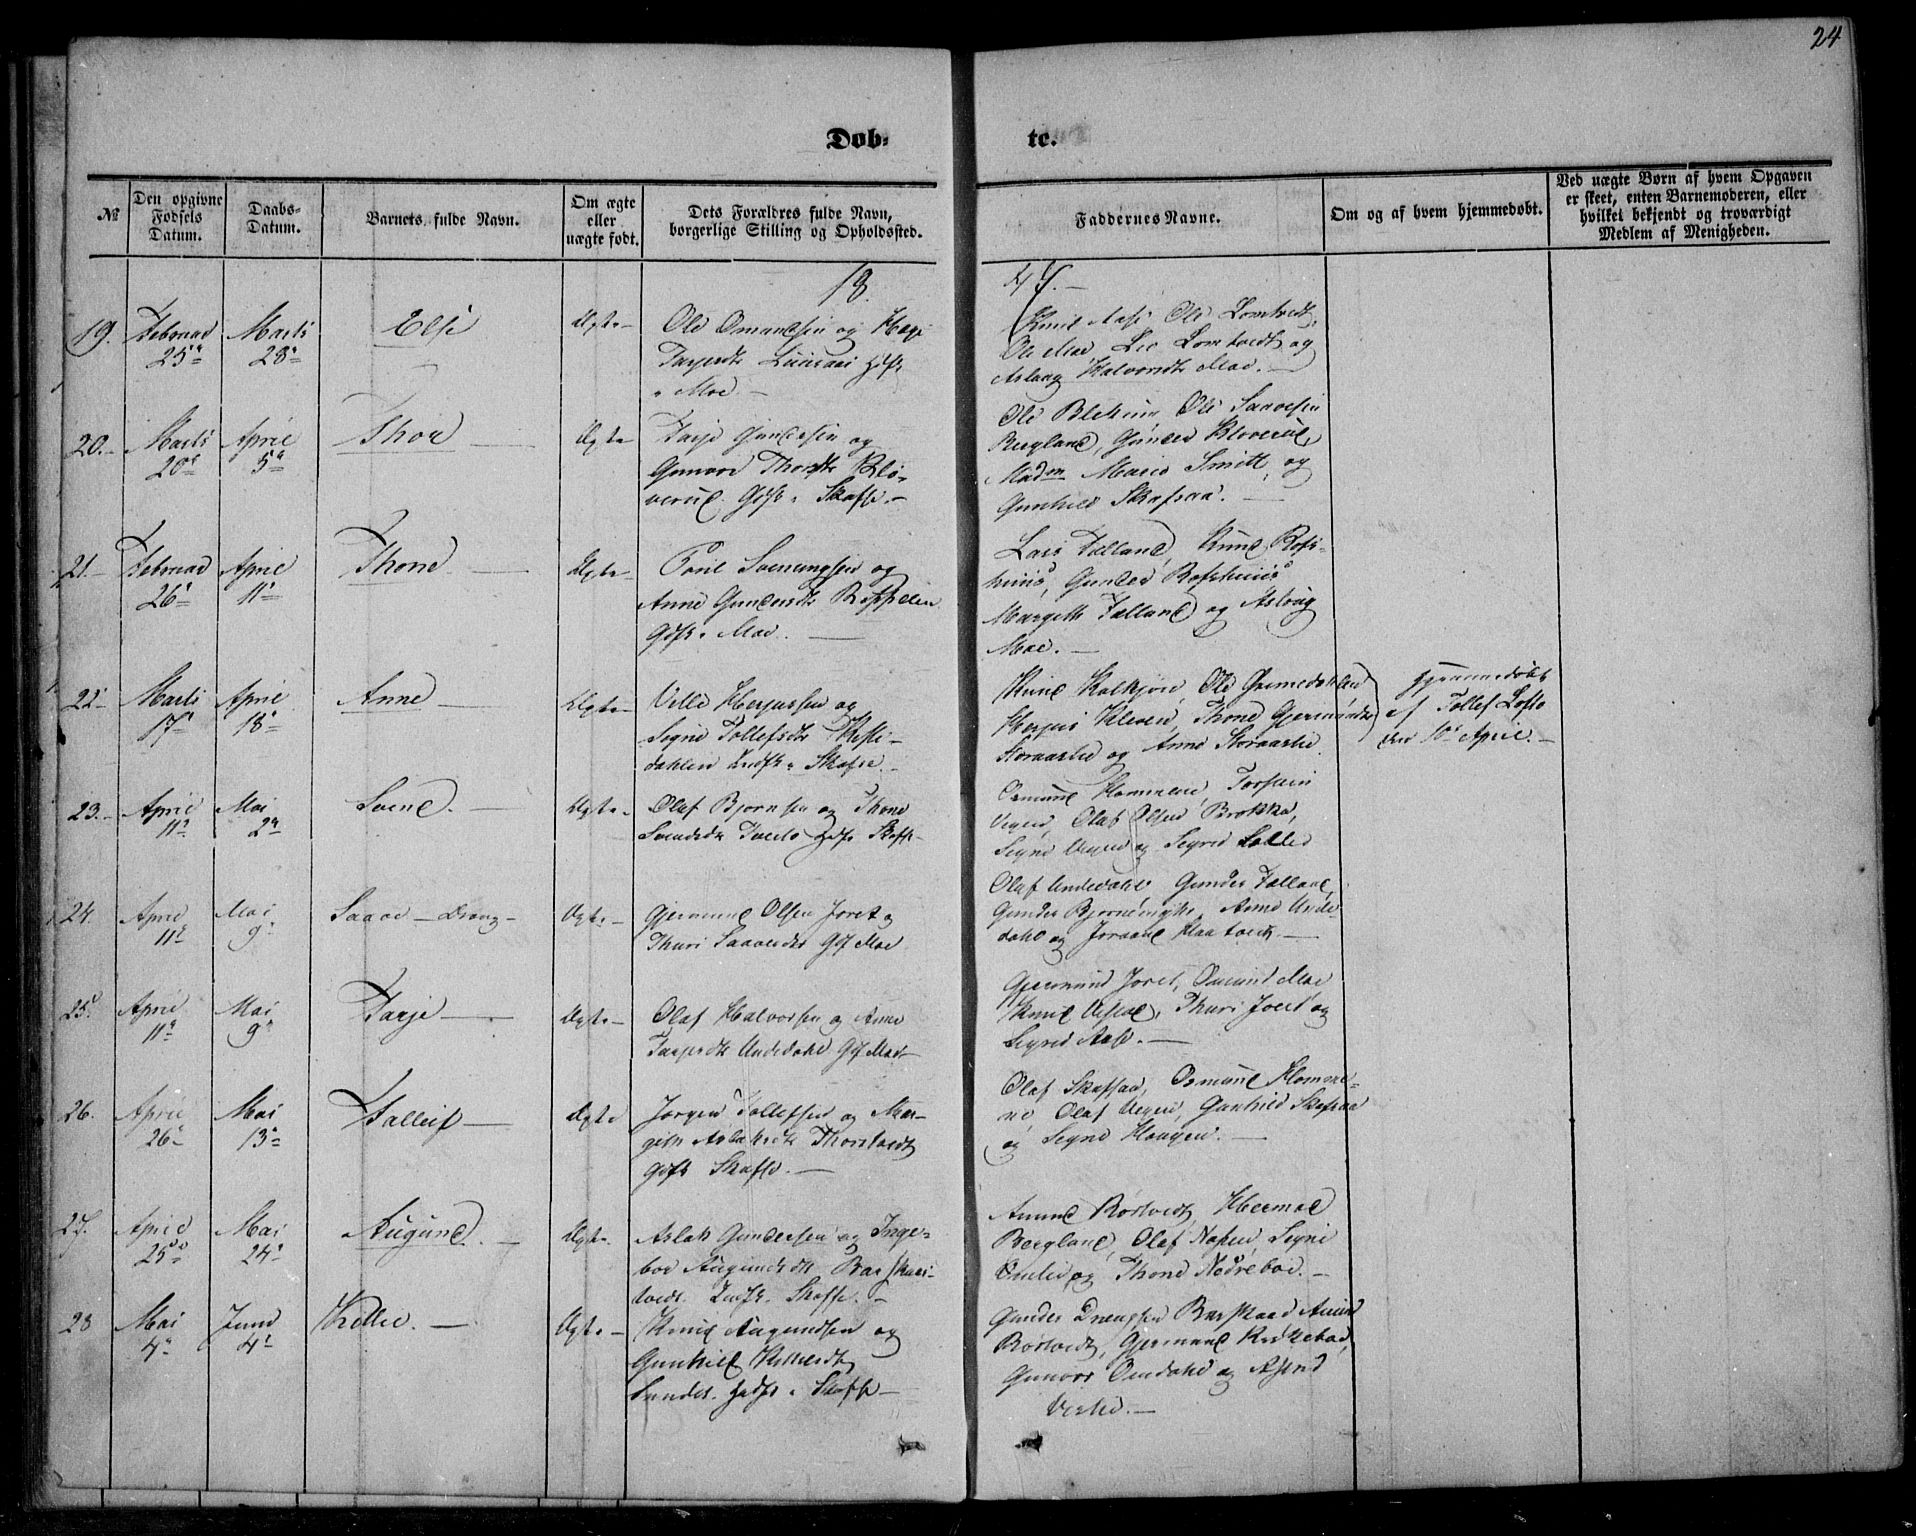 24
Døb-
te.
№
Den opgivne
Fødsels
Datum.
Daabs-
Datum.
Barnets fulde Navn.
Om ægte
eller
uægte født.
Dets Forældres fulde Navn,
borgerlige Stilling og Opholdssted.
Faddernes Navne.
Om og af hvem hjemmedøbt.
Ved uægte Børn af hvem Opgaven
er skeet, enten Barnemoderen, eller
hvilket bekjendt og troværdigt
Medlem af Menigheden.
18
47.-
19.
Februar
25de
Marts
28de
Else
Ægte-
Ole Omundsen og Hæge
Tarjersdtr
Moe -
Knud Aase Ole Lomtvedt,
Ole Moe Lomtvedt og
Aslaug Halvorsdtr Moe. -
20.-
Marts
20de
April
5te
Thor
Ægte
Tarje Gundersen og
Gunvor Thorsdtr Klø-
verud. Gdfk. Skafse.-
Ole Blekum Ole Saavesen
Bergland, Gunder Kloverud,
Madm Marie Smitt, og
Gunhild Skafsaa. -
21.-
Februar
26de
April
11te
Thone
Ægte-
Poul Sveinungsen og
Anne Gundersdtr
Gdfk. Moe. -
Lars Felland, Knud Rofs-
huus, Gunder Rofshuus
Margith Felland og Aslaug
Moe. -
22-
Marts
17de
April
18de
Anne -
Ægte-
Villu Herjussen og
Signe Tollefsdtr
dahlen Skafse -
Knud Kalkjon, Ole Grimedahlen
Herjus Kleven, Thone Gjermundsd
Storaaslie og Anne Storaaslie.
hjemmedøbt
af Tollef Lofto
den 10de April. -
23.-
April
11te
Mai
2den
Svend. -
Ægte-
Olaf Bjornsen og Thone
Svendsdtr Skafse-
Osmund Hommene, Torstein
Vegen, Olaf Olsen Brokka,
Signe Vegen og Sigrid
24.
April
11te
Mai
9de
Saave - Dreng -
Ægte-
Gjermund Olsen Joret og
Thuri Saavesdtr Gdf Moe
Olaf Undedahl Gunder Felland,
Gunder Bjornemyhr, Anne Unde-
dahl og Joraand Haatvedt -
25.
April
11te
Mai
9de
Tarje -
Ægte-
Olaf Halvorsen og Anne
Tarjesdtr Undedahl Gdf Moe-
Gjermund Joret, Osmund Moe
Knud, Thuri Joret og
Sigrid Aase. -
26.
April
26de
Mai
13de
Talleif -
Ægte
Jørgen Tollefsen og Mar-
gith Aslaksdtr Thorstvedt
Gdfk Skafse. -
Olaf Skafsaa, Osmund Homme-
ne Olaf Vegen, Gunhild Skafsaa
og Signe Haugen. -
27.
April
25de
Mai
24de
Augund. -
Ægte-
Aslak Gundersen og Inge-
bor Augundsdtr
Skafse. -
Amund Rortvedt, Hermod
Bergland, Olaf Napen, Signe
og Thone Nedrebøe. -
28
Mai
4de
Juni
4de
Killu. -
Ægte-
Knud Augundsen og
Gunhild Killusdtr
Skafse -
Gunder Drengsen Amund
Rortvedt, Gjermund,
Gunvor Omdahl og